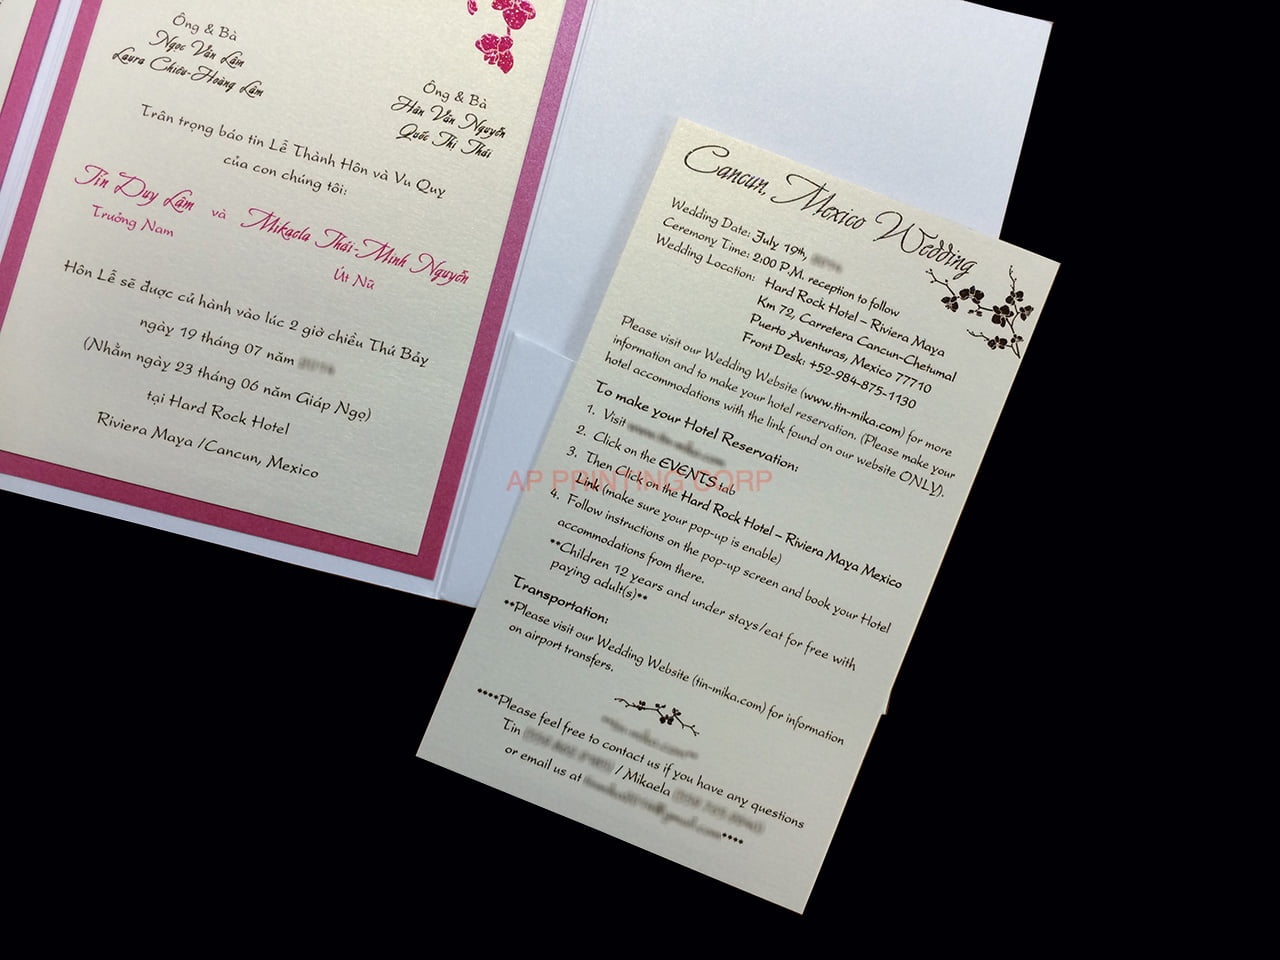 Ông & Bà
Ngọc Văn Lâm
Laura Chiêu-Hoàng Lâm
Ông & Bà
Hân Văn Nguyễn
Quốc Thị Thái
Trân trọng báo tin Lễ Thành Hôn và Vu Quy
của con chúng tôi:
Tín Duy Lâm và Mikaela Thái-Minh Nguyễn
Trưởng Nam
Út Nữ
Hôn Lễ sẽ được cử hành vào lúc 2 giờ chiều Thứ Bảy
ngày 19 tháng 07 năm
(Nhằm ngày 23 tháng 06 năm Giáp Ngọ)
tại Hard Rock Hotel
Riviera Maya /Cancun, Mexico
Cancun, Mexico Wedding
Wedding Date: July 19th,
Ceremony Time: 2:00 P.M. reception to follow
Wedding Location: Hard Rock Hotel – Riviera Maya
Km 72, Carretera Cancun-Chetumal
Puerto Aventuras, Mexico 77710
Front Desk: +52-984-875-1130
Please visit our Wedding Website (www.tin-mika.com) for more
information and to make your hotel reservation. (Please make your
hotel accommodations with the link found on our website ONLY).
To make your Hotel Reservation:
1. Visit
2. Click on the EVENTS tab
3. Then Click on the Hard Rock Hotel – Riviera Maya Mexico
Link (make sure your pop-up is enable)
4. Follow instructions on the pop-up screen and book your Hotel
accommodations from there.
**Children 12 years and under stays/eat for free with
paying adult(s)**
Transportation:
**Please visit our Wedding Website (tin-mika.com) for information
on airport transfers.
****Please feel free to contact us if you have any questions
Tin / Mikaela
or email us at ****
AP PRINTING CORP